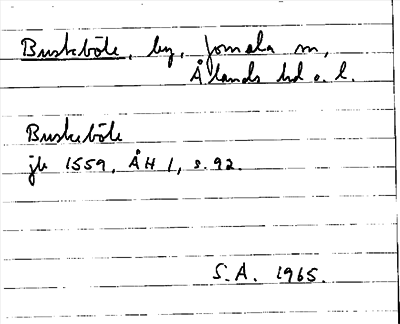 Buskböle, by, Jomala sn,
Ålands hd o. l.
Buskeböle
jb 1559, ÅH 1, s. 92.
S.A. 1965.